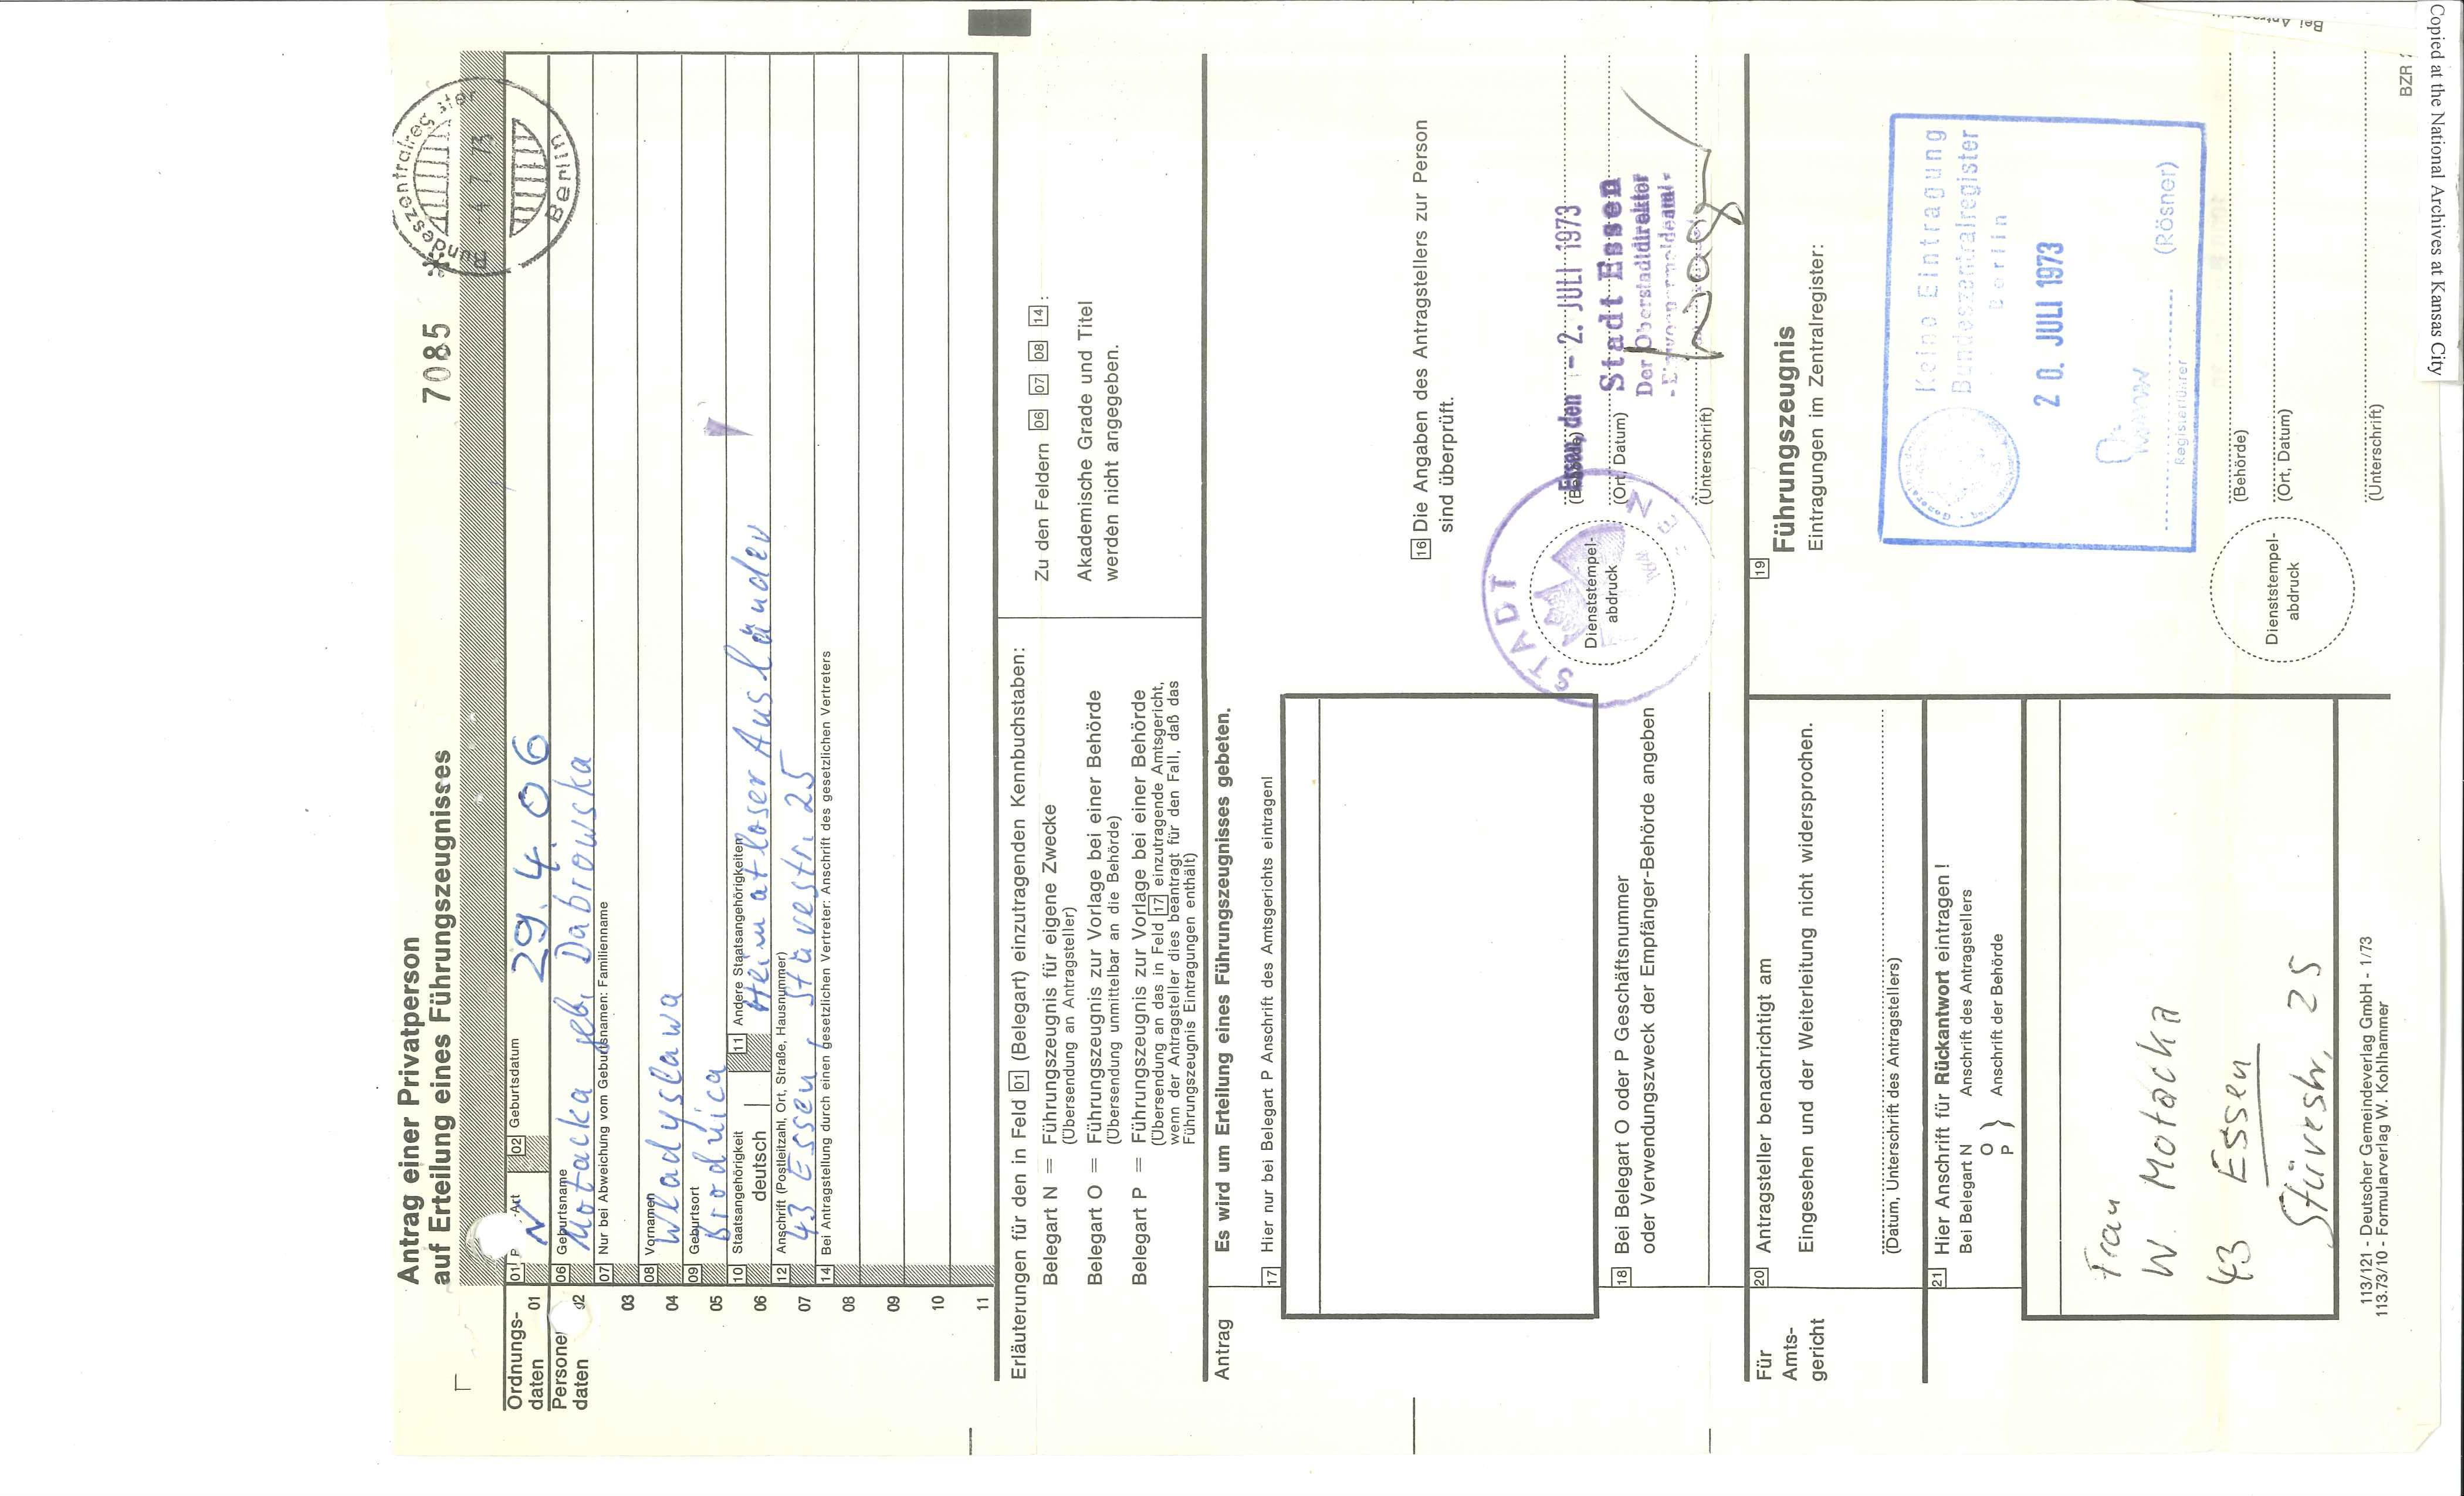 Antrag einer Privatperson
auf Erteilung eines Führungszeugnisses
7085
Bundeszentralregister
4 7 73
Berlin
Ordnungs-
daten
01
01
N
02 Geburtsdatum
29. 4. 06
daten
06 Geburtsname
Motacka geb. Dabrowska
03
07 Nur bei Abweichung vom Geburtsnamen: Familienname
04
08 Vornamen
Wladyslawa
05
09 Geburtsort
Brodnica
06
10 Staatsangehörigkeit
deutsch
11 Andere Staatsangehörigkeiten
Heimatloser Ausländer
07
12 Anschrift (Postleitzahl, Ort, Straße, Hausnummer)
43 Essen, Stüvestr. 25
08
14 Bei Antragstellung durch einen gesetzlichen Vertreter: Anschrift des gesetzlichen Vertreters
09
10
11
Erläuterungen für den in Feld 01 (Belegart) einzutragenden Kennbuchstaben:
Belegart N = Führungszeugnis für eigene Zwecke
(Übersendung an Antragsteller)
Belegart O = Führungszeugnis zur Vorlage bei einer Behörde
(Übersendung unmittelbar an die Behörde)
Belegart P = Führungszeugnis zur Vorlage bei einer Behörde
(Übersendung an das in Feld 17 einzutragende Amtsgericht,
wenn der Antragsteller dies beantragt für den Fall, daß das
Führungszeugnis Eintragungen enthält)
Zu den Feldern 06 07 08 14 :
Akademische Grade und Titel
werden nicht angegeben.
Antrag
Es wird um Erteilung eines Führungszeugnisses gebeten.
17 Hier nur bei Belegart P Anschrift des Amtsgerichts eintragen!
16 Die Angaben des Antragstellers zur Person
sind überprüft.
Essen, den - 2. JULI 1973
Stadt Essen
(Ort, Datum)
Der Oberstadtdirektor
- Einwohnermeldeamt -
(Unterschrift)
STADT ESSEN
Dienststempel-
abdruck
18 Bei Belegart O oder P Geschäftsnummer
oder Verwendungszweck der Empfänger-Behörde angeben
Für
Amts-
gericht
20 Antragsteller benachrichtigt am
Eingesehen und der Weiterleitung nicht widersprochen.
(Datum, Unterschrift des Antragstellers)
19 Führungszeugnis
Eintragungen im Zentralregister:
Keine Eintragung
Bundeszentralregister
Berlin
20. JULI 1973
(Rösner)
Registerführer
21 Hier Anschrift für Rückantwort eintragen!
Bei Belegart N Anschrift des Antragstellers
O
P } Anschrift der Behörde
Frau
W. Motacka
43 Essen
Stüvestr. 25
Dienststempel-
abdruck
(Behörde)
(Ort, Datum)
(Unterschrift)
113/121 - Deutscher Gemeindeverlag GmbH - 1/73
113.73/10 - Formularverlag W. Kohlhammer
BZR
Bei
Copied at the National Archives at Kansas City